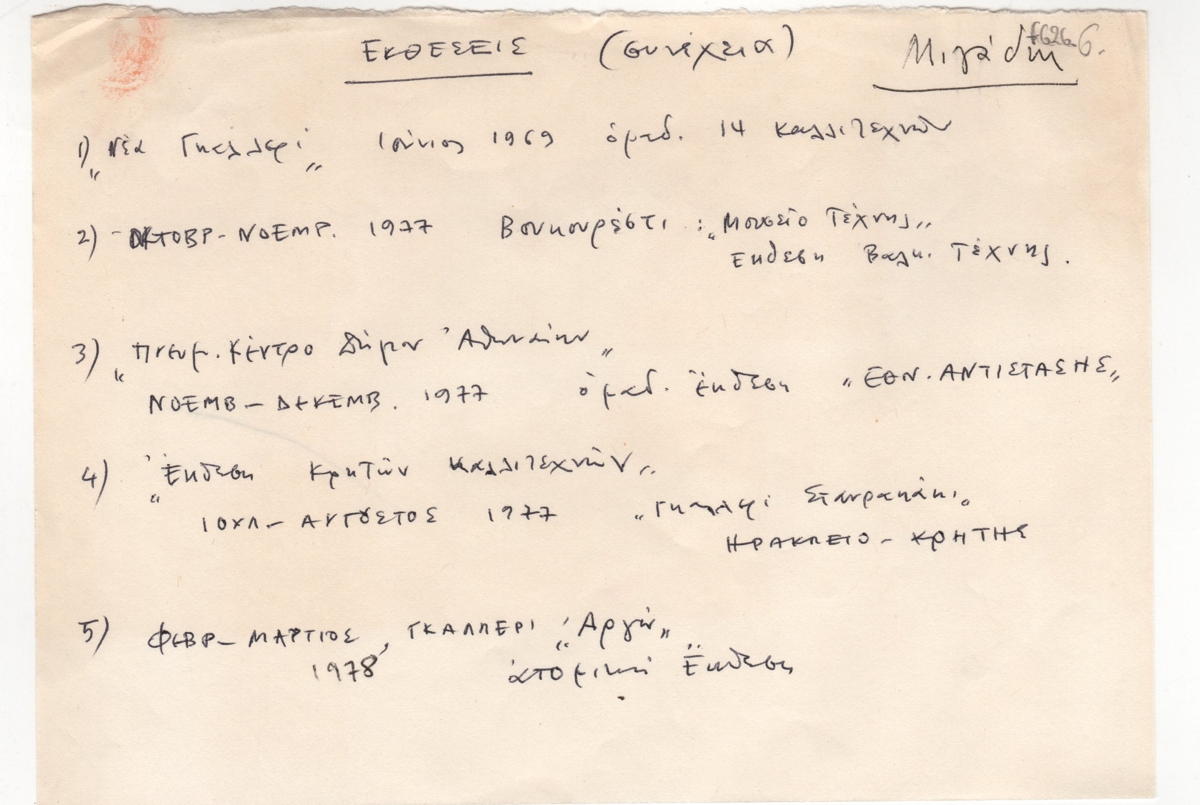 ΕΚΘΕΣΕΙΣ (συνέχεια) Μιγάδη 6.
1) „Νέα Γκαλλερί„ Ιούνιος 1969 ὁμαδ. 14 καλλιτεχνῶν
2) ΟΚΤΟΒΡ-ΝΟΕΜΡ. 1977 Βουκουρέστι : „Μουσείο Τέχνης„
Εκθεση Βαλκ. Τέχνης.
3) „Πνευμ. Κέντρο Δήμου Ἀθηναίων„
ΝΟΕΜΒ - ΔΕΚΕΜΒ. 1977 ὁμαδ. Ἔκθεση „ΕΘΝ. ΑΝΤΙΣΤΑΣΗΣ„
4) „Ἔκθεση Κρητῶν Καλλιτεχνῶν„
ΙΟΥΛ - ΑΥΓΟΥΣΤΟΣ 1977 „Γκαλερί Σταυρακάκι„
ΗΡΑΚΛΕΙΟ - ΚΡΗΤΗΣ
5) ΦΕΒΡ - ΜΑΡΤΙΟΣ, ΓΚΑΛΛΕΡΙ „Αργώ„
1978 ἀτομική Ἔκθεση